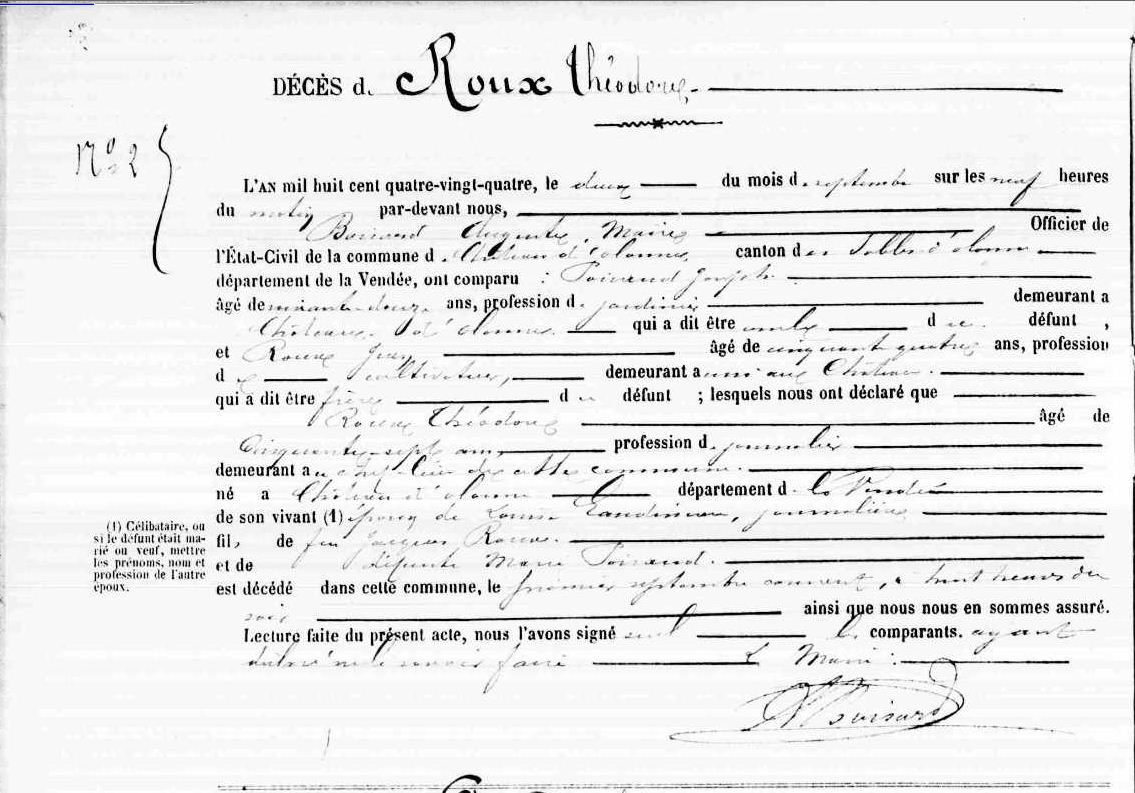 DÉCÈS d. Roux Théodore
No 25
L'AN mil huit cent quatre-vingt-quatre, le deux du mois d. septembre sur les neuf heures
du matin par-devant nous,
Auguste, Maire Officier de
l'État-Civil de la commune d. Château d'olonne, canton des Sables d'olonne
département de la Vendée, ont comparu : Poiraud Joseph
âgé de soixante-douze ans, profession d. jardinier demeurant a
Château d'olonne qui a dit être oncle d u défunt ,
et Roux Jean âgé de cinquante-quatre ans, profession
d e cultivateur, demeurant a ussi au Château.
qui a dit être frère d u défunt ; lesquels nous ont déclaré que
Roux Théodore âgé de
Cinquante-sept ans, profession d. journalier
demeurant au chef-lieu de cette commune.
né a Château d'olonne département d. la Vendée
de son vivant (1) époux de Louise journalière
fils de feu Jacques Roux.
et de défunte Marie Poiraud.
est décédé dans cette commune, le premier septembre courant, à huit heures du
soir ainsi que nous nous en sommes assuré.
Lecture faite du présent acte, nous l'avons signé seul les comparants. ayant
déclaré ne le savoir faire Le Maire :
(1) Célibataire, ou
si le défunt était ma-
rié ou veuf, mettre
les prénoms, nom et
profession de l'autre
époux.